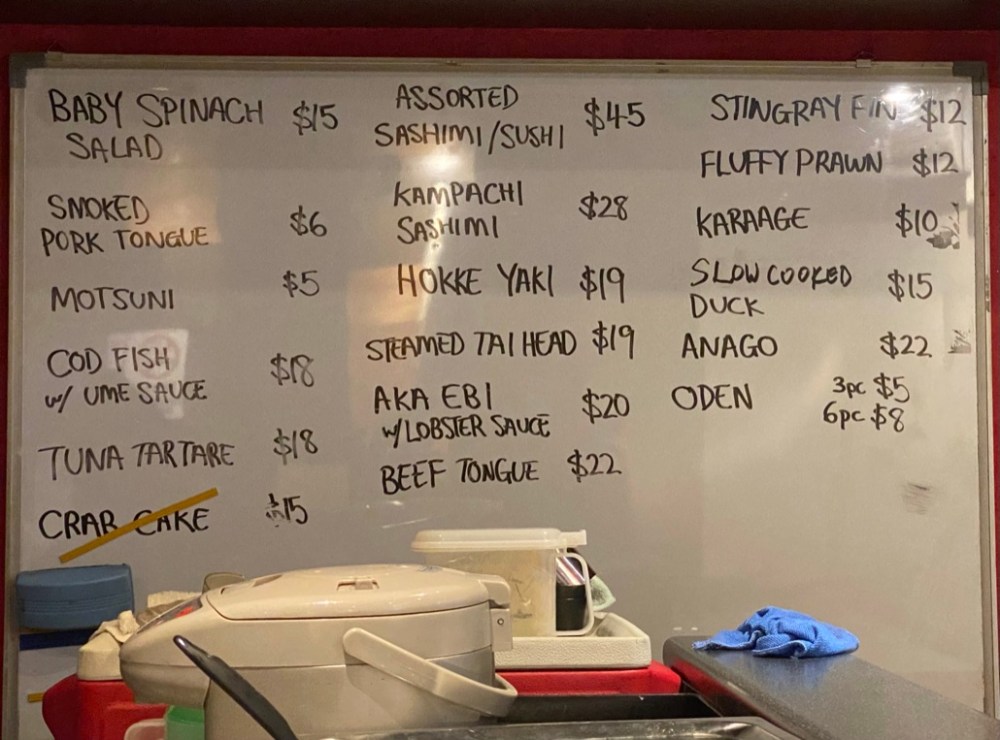 BABY SPINACH $15
SALAD
SMOKED
PORK TONGUE $6
MOTSUNI $5
COD FISH $18
w/ UME SAUCE
TUNA TARTARE $18
CRAB CAKE $15
ASSORTED
SASHIMI/SUSHI $45
KAMPACHI $28
SASHIMI
HOKKE YAKI $19
STEAMED TAI HEAD $19
AKA EBI $20
W/LOBSTER SAUCE
BEEF TONGUE $22
STINGRAY FIN $12
FLUFFY PRAWN $12
KARAAGE $10
SLOW COOKED $15
DUCK
ANAGO $22
ODEN 3pc $5
6pc $8